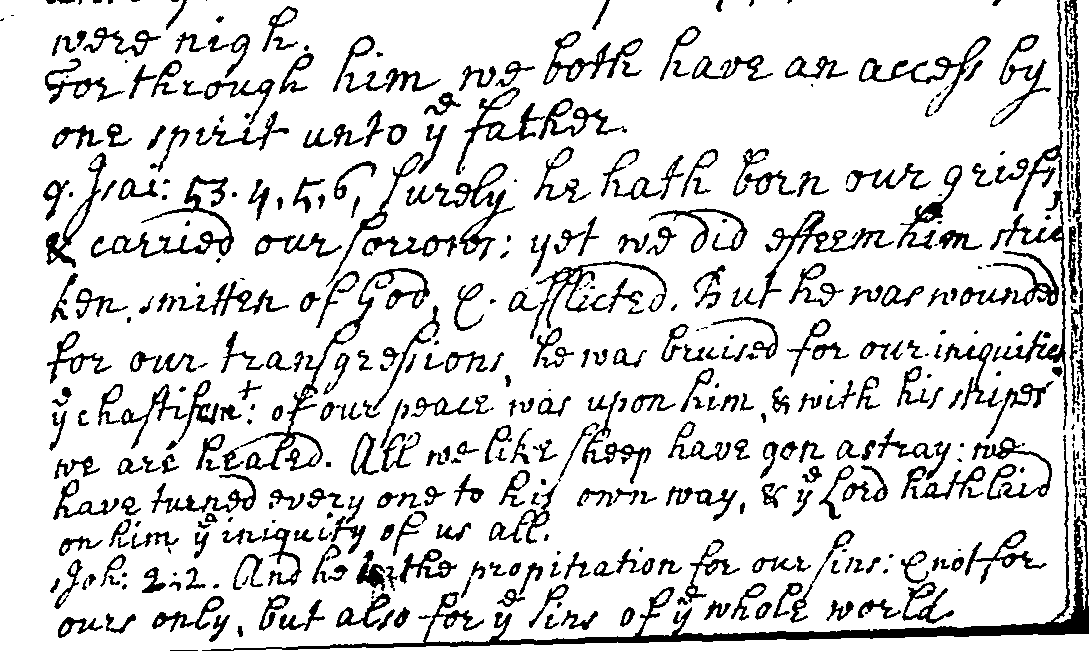 were nigh.
For through him we both have an access by
one spirit unto yᵉ father.
9. Isai: 53. 4, 5, 6, Surely he hath born our griefs,
& carried our sorrows: yet we did esteem him stric
ken, smitten of God, & afflicted. But he was wounded
for our transgressions, he was bruised for our iniquities
yᵉ chastisemᵗ: of our peace was upon him, & with his stripes
we are healed. All we like sheep have gon astray: we
have turned every one to his own way, & yᵉ Lord hath laid
on him yᵉ iniquity of us all.
1 Joh: 2:2. And he is the propitiation for our sins: & not for
ours only, but also for yᵉ sins of yᵉ whole world